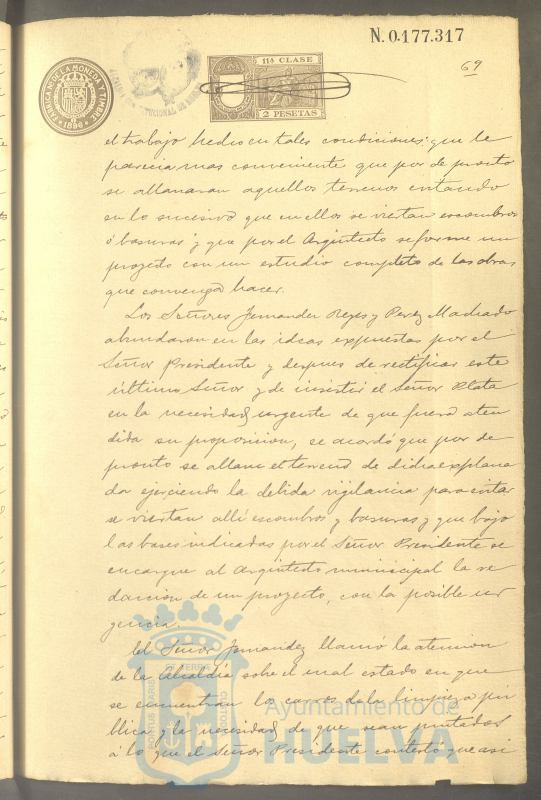 N. 0.177.317
69
FABRICA NL. DE LA MONEDA Y TIMBRE
1896
11ª CLASE
2 PESETAS
el trabajo hecho en tales condiciones; que le
parecia mas conveniente que por de pronto
se allanaran aquellos terrenos evitando
en lo sucesivo que en ellos se viertan escombros
ó basuras y que por el Arquitecto se forme un
proyecto con un estudio completo de las obras
que convenga hacer.
Los Señores Fernandez Reyes y Perez Machado
abundaron en las ideas expuestas por el
Señor Presidente y despues de rectificar este
último Señor y de insistir el Señor Plata
en la necesidad urgente de que fuera aten
dida su proposicion, se acordó que por de
pronto se allane el terreno de dicha explana
da ejerciendo la debida vigilancia para evitar
se viertan allí escombros y basuras y que bajo
las bases indicadas por el Señor Presidente se
encargue al Arquitecto municipal la re
daccion de un proyecto, con la posible ur
gencia.
El Señor Fernandez llamó la atencion
de la Alcaldía sobre el mal estado en que
se encuentran los carros de la limpieza pú
blica y la necesidad de que sean pintados
á lo que el Señor Presidente contestó que así
Ayuntamiento de
HUELVA